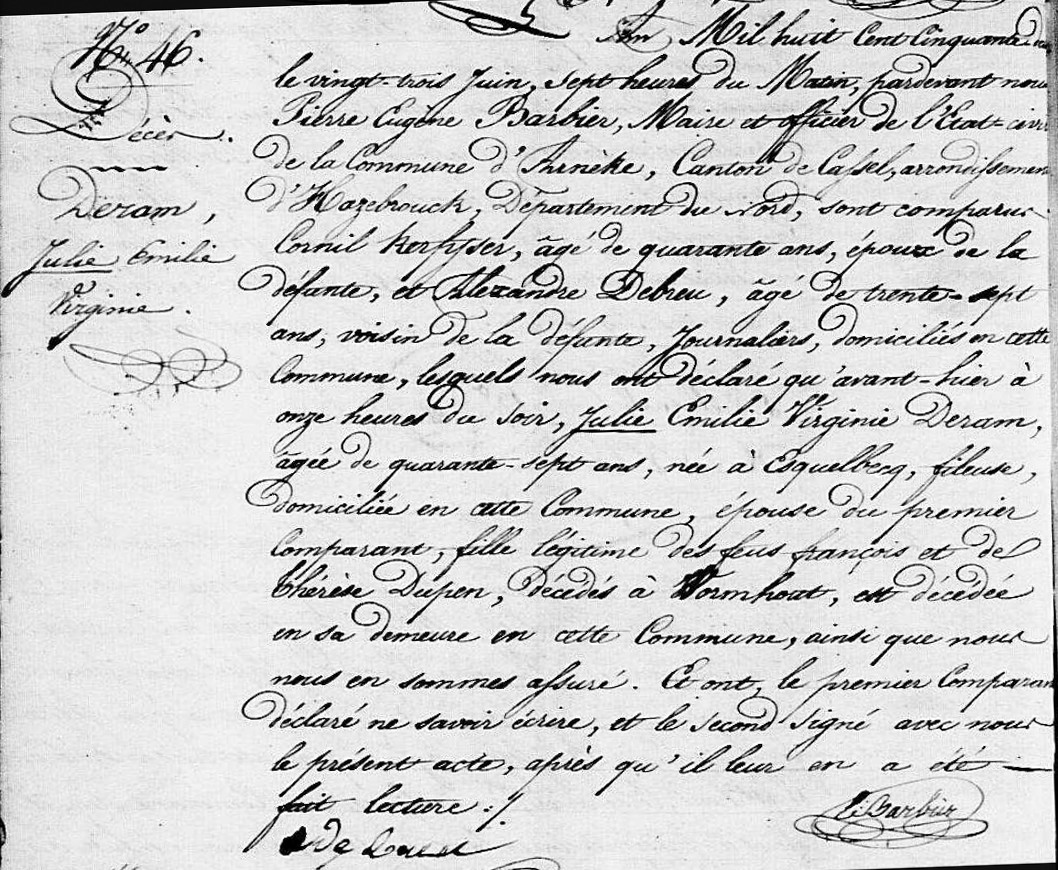 N.° 46.
Décès.
Deram,
Julie Emilie
Virginie.
Mil huit Cent Cinquante
le vingt-trois Juin, sept heures du Matin, pardevant nous
Pierre Eugène Barbier, Maire et officier de l'Etat-civil
de la Commune d'Arnèke, Canton de Cassel, arrondissement
d'Hazebrouck, Département du Nord, sont comparus
Cornil Kerfyser, âgé de quarante ans, époux de la
défunte, et Alexandre Debreu, âgé de trente-sept
ans, voisin de la défunte, Journaliers, domiciliés en cette
Commune, lesquels nous ont déclaré qu'avant-hier à
onze heures du soir, Julie Emilie Virginie Deram,
âgée de quarante-sept ans, née à Esquelbecq, fileuse,
domiciliée en cette Commune, épouse du premier
Comparant, fille légitime des feus françois et de
Thérèse Dupen, décédés à Wormhout, est décédée
en sa demeure en cette Commune, ainsi que nous
nous en sommes assuré. Et ont, le premier Comparant
déclaré ne savoir écrire, et le second signé avec nous
le présent acte, après qu'il leur en a été
fait lecture ./.
E. Barbier